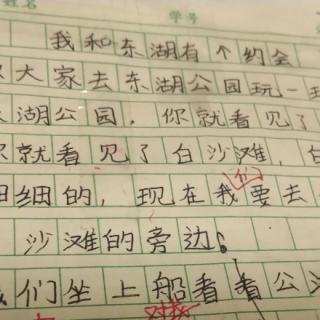 姓名 学号
我和东湖有个约会
大家去东湖公园玩一玩
湖公园，你就看见了
你就看见了白沙滩，白
细细的，现在我们要去
沙滩的旁边。
我们坐上船看看公